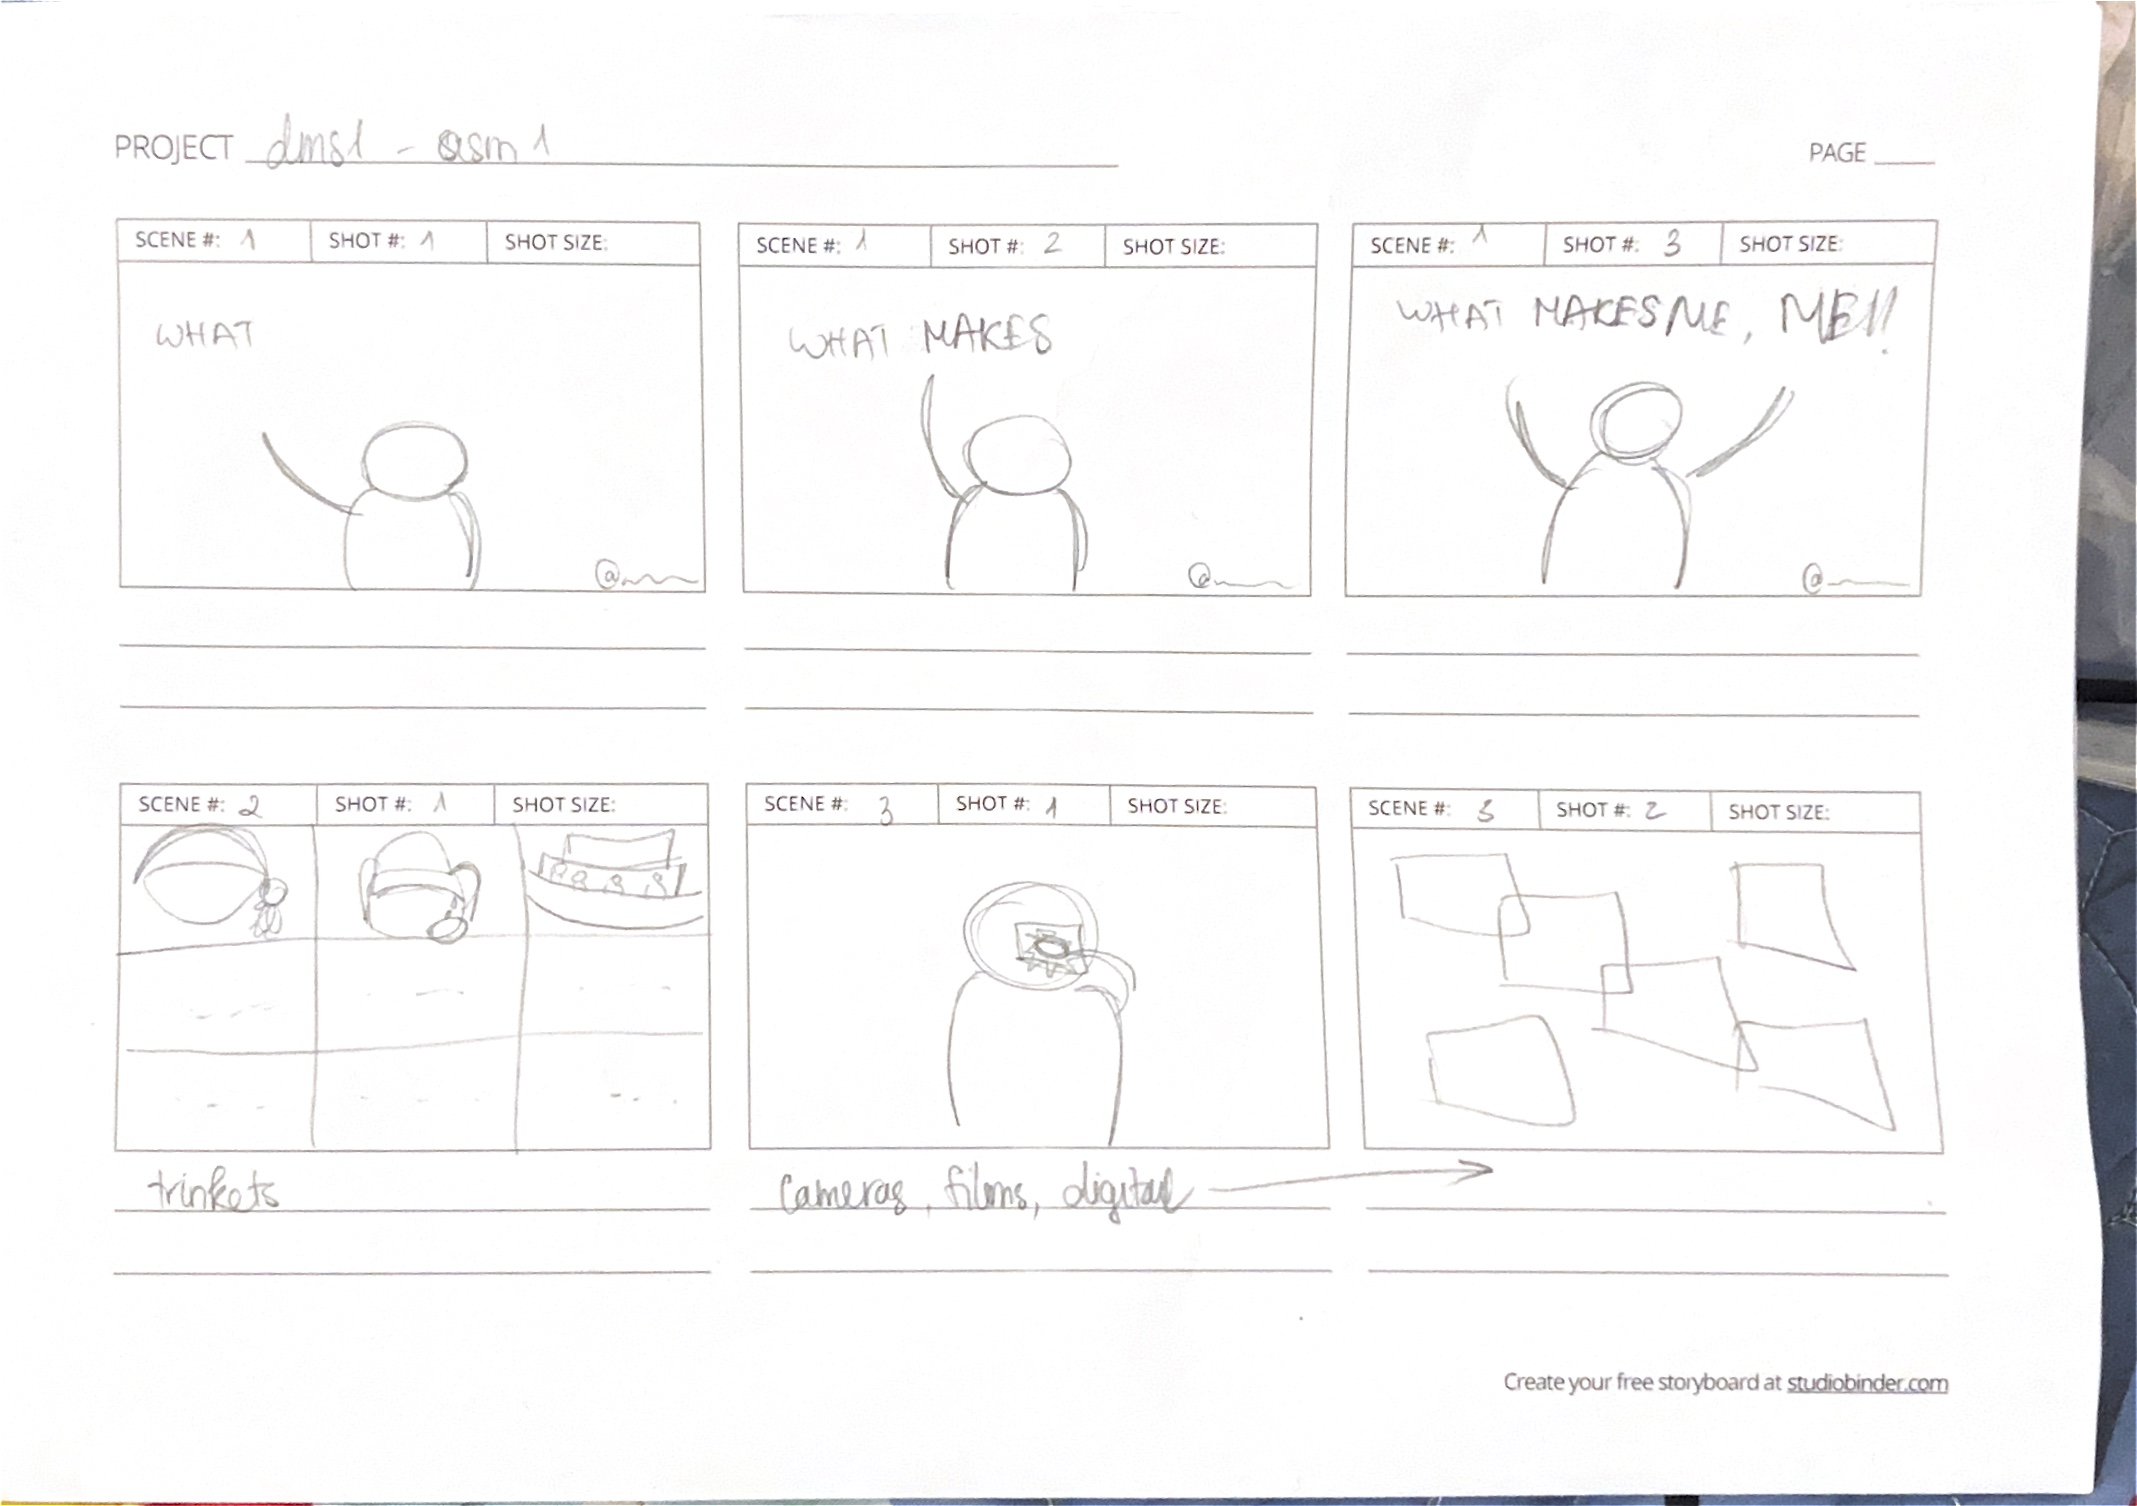 PROJECT dms1 - asm 1
PAGE
SCENE #: 1 SHOT #: 1 SHOT SIZE:
WHAT
@
SCENE #: 1 SHOT #: 2 SHOT SIZE:
WHAT MAKES
@
SCENE #: 1 SHOT #: 3 SHOT SIZE:
WHAT MAKES ME, ME!!
@
SCENE #: 2 SHOT #: 1 SHOT SIZE:
trinkets
SCENE #: 3 SHOT #: 1 SHOT SIZE:
cameras, films, digital
SCENE #: 3 SHOT #: 2 SHOT SIZE:
Create your free storyboard at studiobinder.com